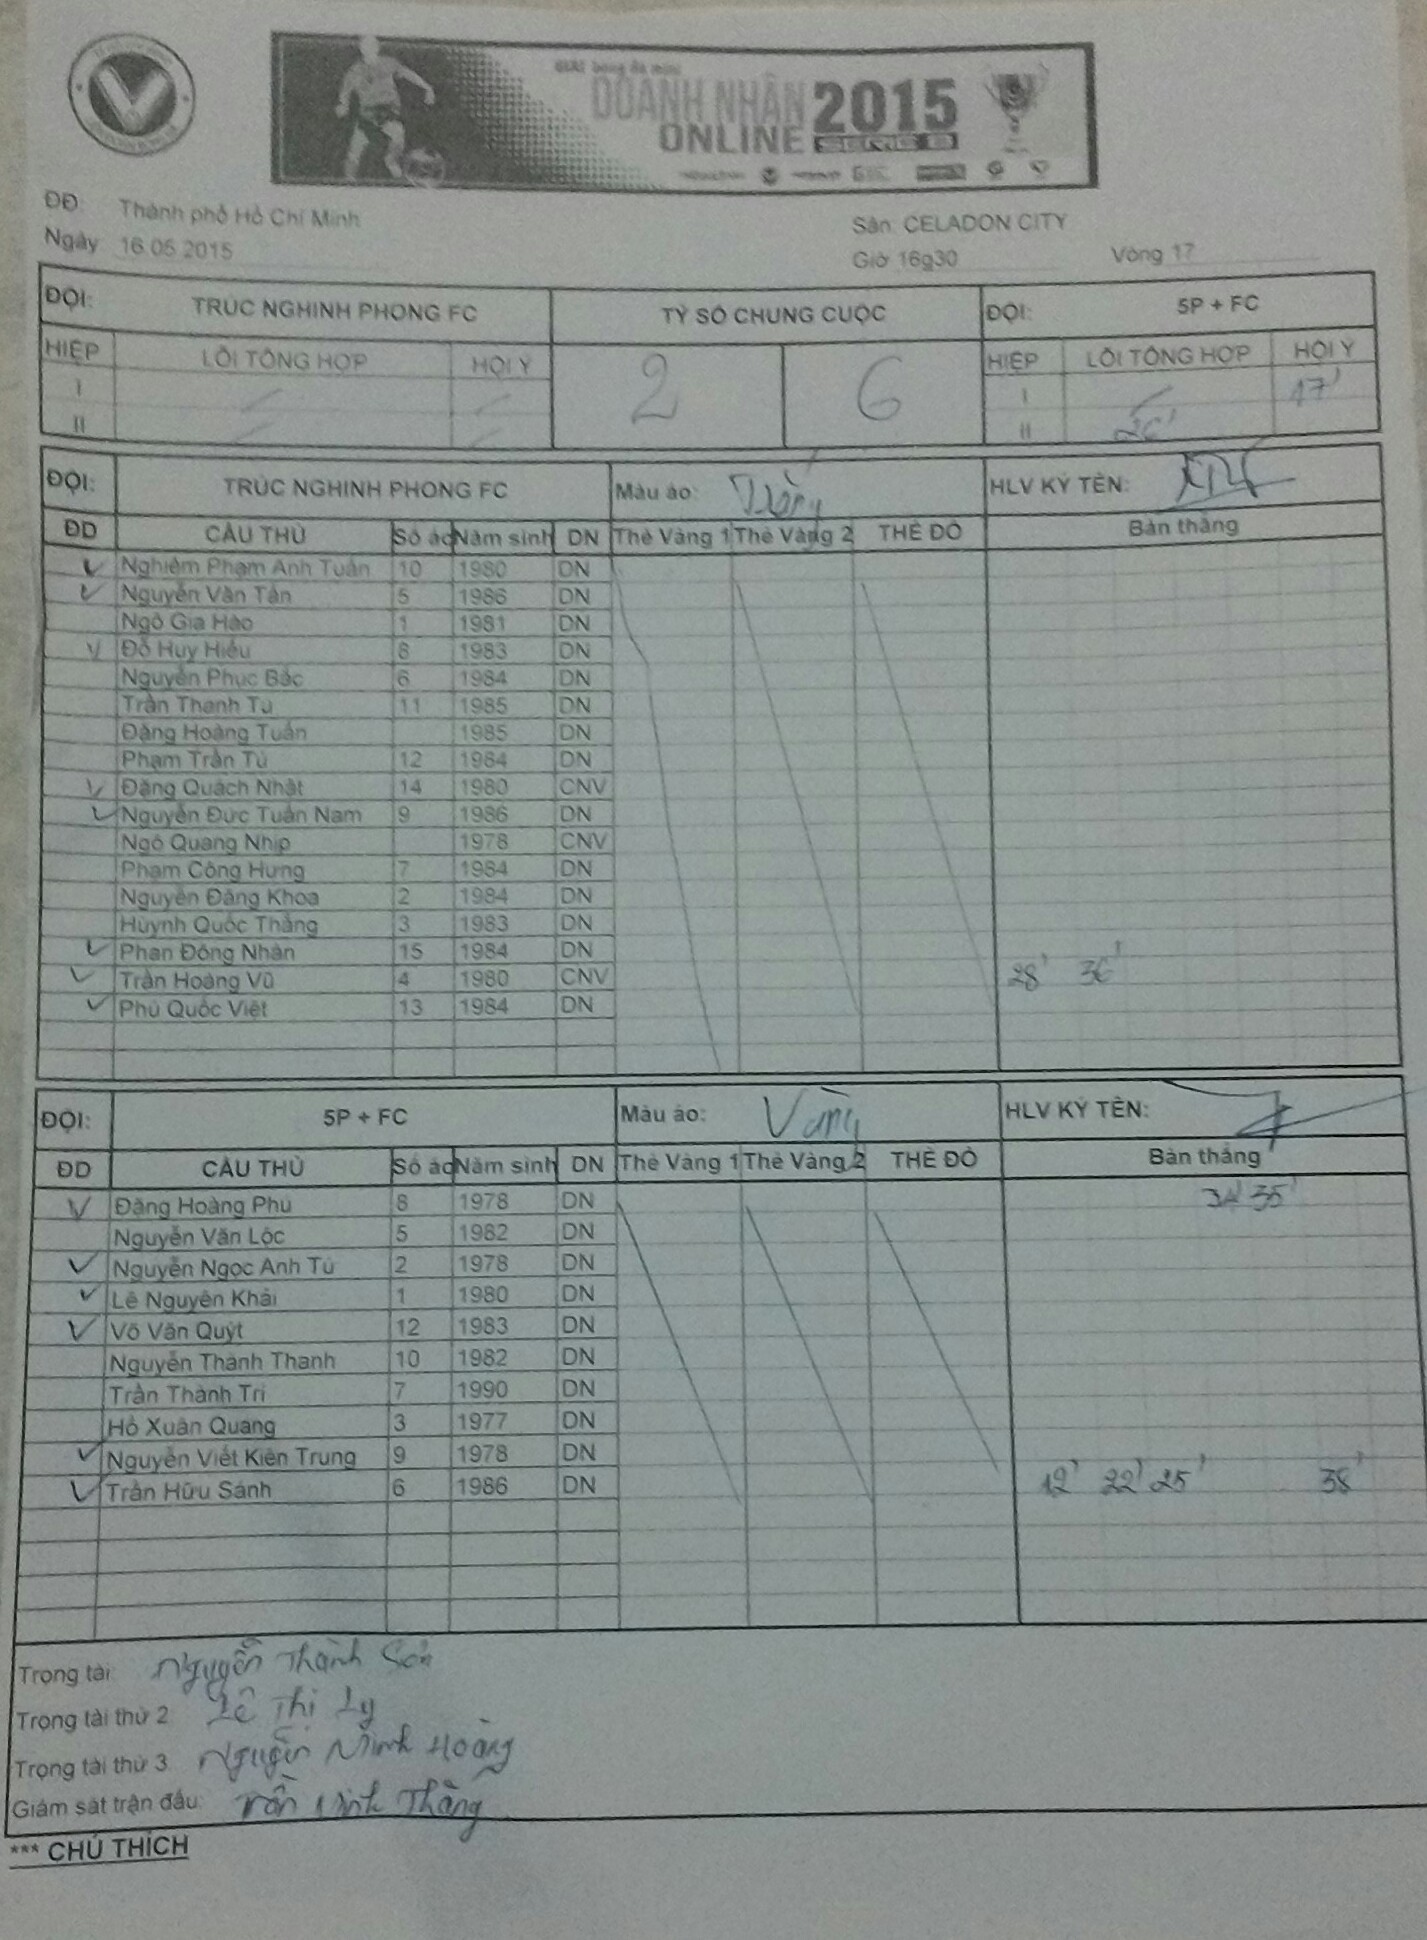 GIẢI bóng đá mini
DOANH NHÂN 2015
ONLINE SERIE B
ĐĐ: Thành phố Hồ Chí Minh Sân: CELADON CITY
Ngày 16.05.2015 Giờ 16g30 Vòng 17
ĐỘI: TRÚC NGHINH PHONG FC TỶ SỐ CHUNG CUỘC ĐỘI: 5P + FC
HIỆP LỖI TỔNG HỢP HỘI Ý 2 6 HIỆP LỖI TỔNG HỢP HỘI Ý
I I 17'
II II 26'
ĐỘI: TRÚC NGHINH PHONG FC Màu áo: HLV KÝ TÊN:
ĐD CẦU THỦ Số áo Năm sinh DN Thẻ Vàng 1 Thẻ Vàng 2 THẺ ĐỎ Bàn thắng
Nghiêm Phạm Anh Tuấn 10 1980 DN
Nguyễn Văn Tấn 5 1986 DN
Ngô Gia Hào 1 1981 DN
Đỗ Huy Hiếu 8 1983 DN
Nguyễn Phục Bắc 6 1984 DN
Trần Thanh Tú 11 1985 DN
Đặng Hoàng Tuấn 1985 DN
Phạm Trần Tú 12 1984 DN
Đặng Quách Nhật 14 1980 CNV
Nguyễn Đức Tuấn Nam 9 1986 DN
Ngô Quang Nhịp 1978 CNV
Phạm Công Hưng 7 1984 DN
Nguyễn Đăng Khoa 2 1984 DN
Huỳnh Quốc Thắng 3 1983 DN
Phan Đông Nhân 15 1984 DN
Trần Hoàng Vũ 4 1980 CNV 28' 36'
Phú Quốc Việt 13 1984 DN
ĐỘI: 5P + FC Màu áo: Vàng HLV KÝ TÊN:
ĐD CẦU THỦ Số áo Năm sinh DN Thẻ Vàng 1 Thẻ Vàng 2 THẺ ĐỎ Bàn thắng
Đặng Hoàng Phú 8 1978 DN 35'
Nguyễn Văn Lộc 5 1982 DN
Nguyễn Ngọc Anh Tú 2 1978 DN
Lê Nguyên Khải 1 1980 DN
Võ Văn Quýt 12 1983 DN
Nguyễn Thành Thanh 10 1982 DN
Trần Thành Trí 7 1990 DN
Hồ Xuân Quang 3 1977 DN
Nguyễn Viết Kiên Trung 9 1978 DN
Trần Hữu Sánh 6 1986 DN 12' 22' 25' 38'
Trọng tài: Nguyễn Thành Sơn
Trọng tài thứ 2: Lê Thị Ly
Trọng tài thứ 3: Nguyễn Minh Hoàng
Giám sát trận đấu: Trần Thắng
*** CHÚ THÍCH